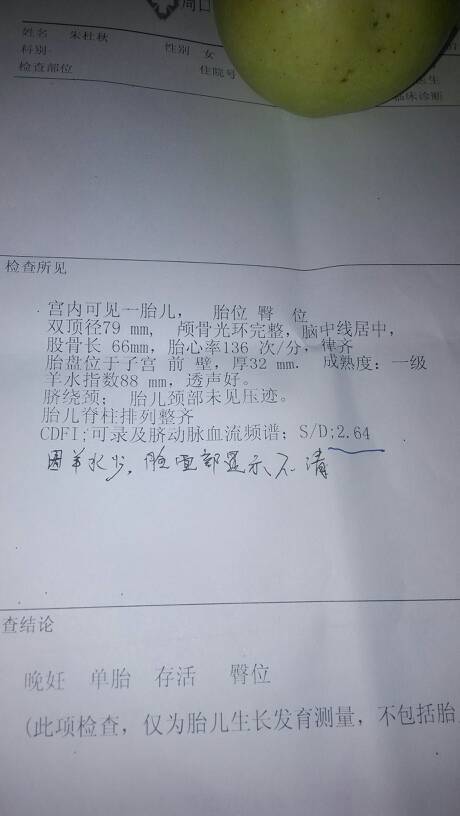 周口
姓名 朱杜秋
科别 性别 女
检查部位 住院号
临床诊断
检查所见
宫内可见一胎儿， 胎位 臀 位
双顶径79 mm， 颅骨光环完整，脑中线居中，
股骨长 66mm，胎心率136 次/分，律齐
胎盘位于子宫 前 壁，厚32 mm. 成熟度：一级
羊水指数88 mm，透声好。
脐绕颈； 胎儿颈部未见压迹。
胎儿脊柱排列整齐
CDFI;可录及脐动脉血流频谱；S/D;2.64
因羊水少，胎面部显示不清
查结论
晚妊 单胎 存活 臀位
(此项检查，仅为胎儿生长发育测量，不包括胎